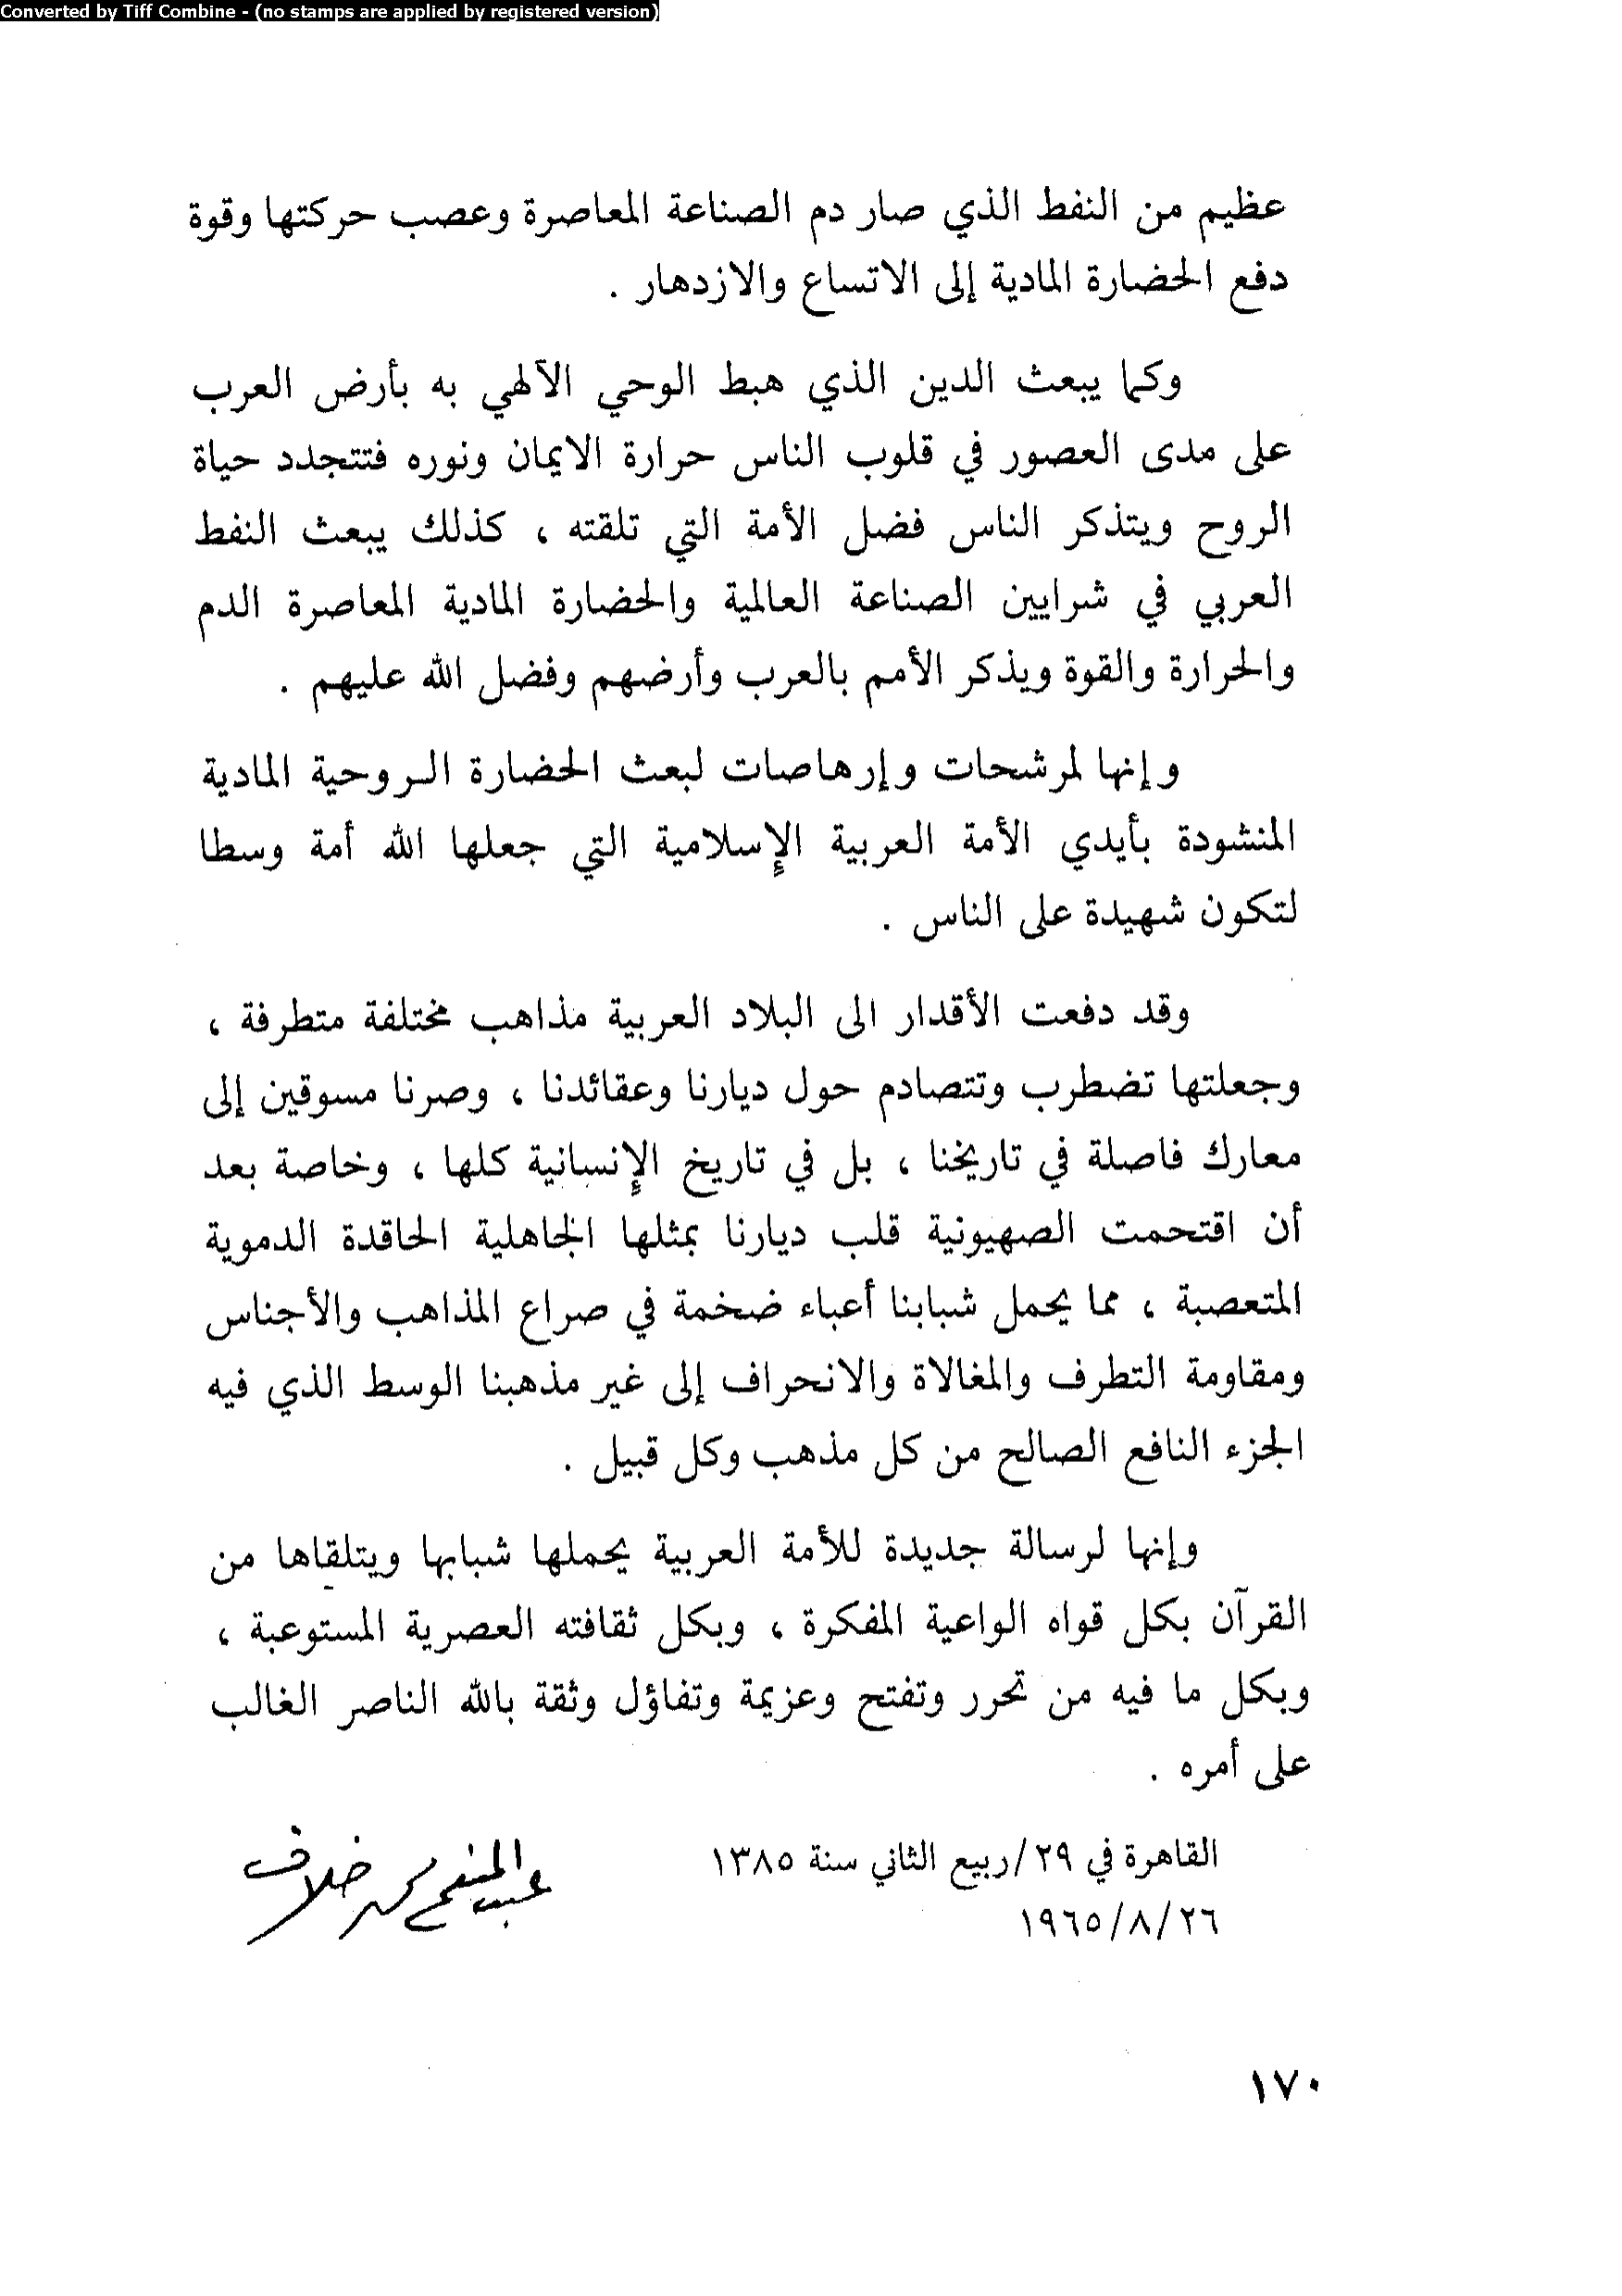 Converted by Tiff Combine - (no stamps are applied by registered version)
عظيم من النفط الذي صار دم الصناعة المعاصرة وعصب حركتها وقوة
دفع الحضارة المادية إلى الاتساع والازدهار .
وكما يبعث الدين الذي هبط الوحي الآلهي به بأرض العرب
على مدى العصور في قلوب الناس حرارة الايمان ونوره فتتجدد حياة
الروح ويتذكر الناس فضل الأمة التي تلقته ، كذلك يبعث النفط
العربي في شرايين الصناعة العالمية والحضارة المادية المعاصرة الدم
والحرارة والقوة ويذكر الأمم بالعرب وأرضهم وفضل الله عليهم .
وإنها لمرشحات وإرهاصات لبعث الحضارة الروحية المادية
المنشودة بأيدي الأمة العربية الإسلامية التي جعلها الله أمة وسطا
لتكون شهيدة على الناس .
وقد دفعت الأقدار الى البلاد العربية مذاهب مختلفة متطرفة ،
وجعلتها تضطرب وتتصادم حول ديارنا وعقائدنا ، وصرنا مسوقين إلى
معارك فاصلة في تاريخنا ، بل في تاريخ الإنسانية كلها ، وخاصة بعد
أن اقتحمت الصهيونية قلب ديارنا بمثلها الجاهلية الحاقدة الدموية
المتعصبة ، مما يحمل شبابنا أعباء ضخمة في صراع المذاهب والأجناس
ومقاومة التطرف والمغالاة والانحراف إلى غير مذهبنا الوسط الذي فيه
الجزء النافع الصالح من كل مذهب وكل قبيل .
وإنها لرسالة جديدة للأمة العربية يحملها شبابها ويتلقاها من
القرآن بكل قواه الواعية المفكرة ، وبكل ثقافته العصرية المستوعبة ،
وبكل ما فيه من تحرر وتفتح وعزيمة وتفاؤل وثقة بالله الناصر الغالب
على أمره .
القاهرة في ٢٩/ربيع الثاني سنة ١٣٨٥
٢٦/٨/١٩٦٥
عبد المنعم محمد خلاف
١٧٠